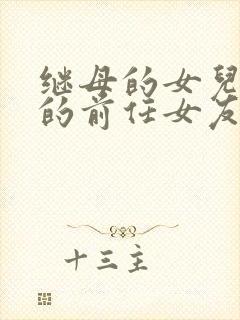 继母的女兒
的前任女友
十三主